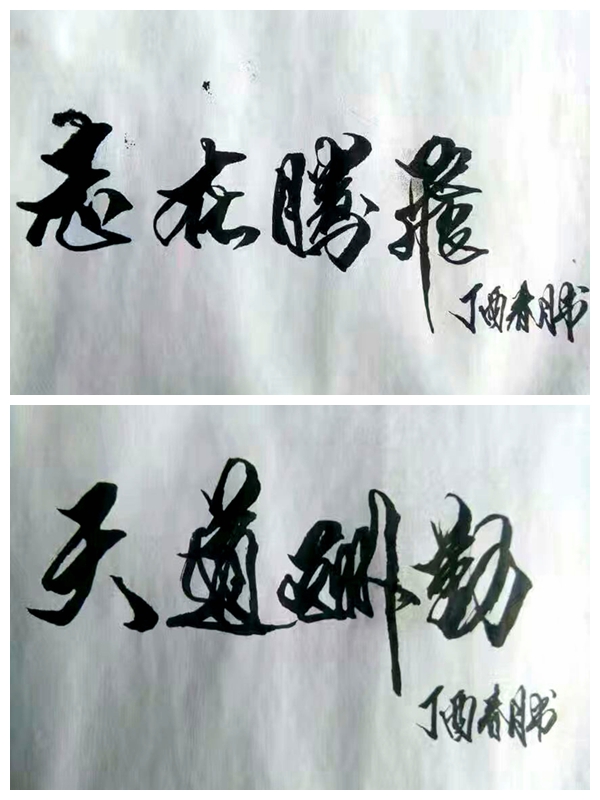 志在腾飞
丁酉春月书
天道酬勤
丁酉春月书